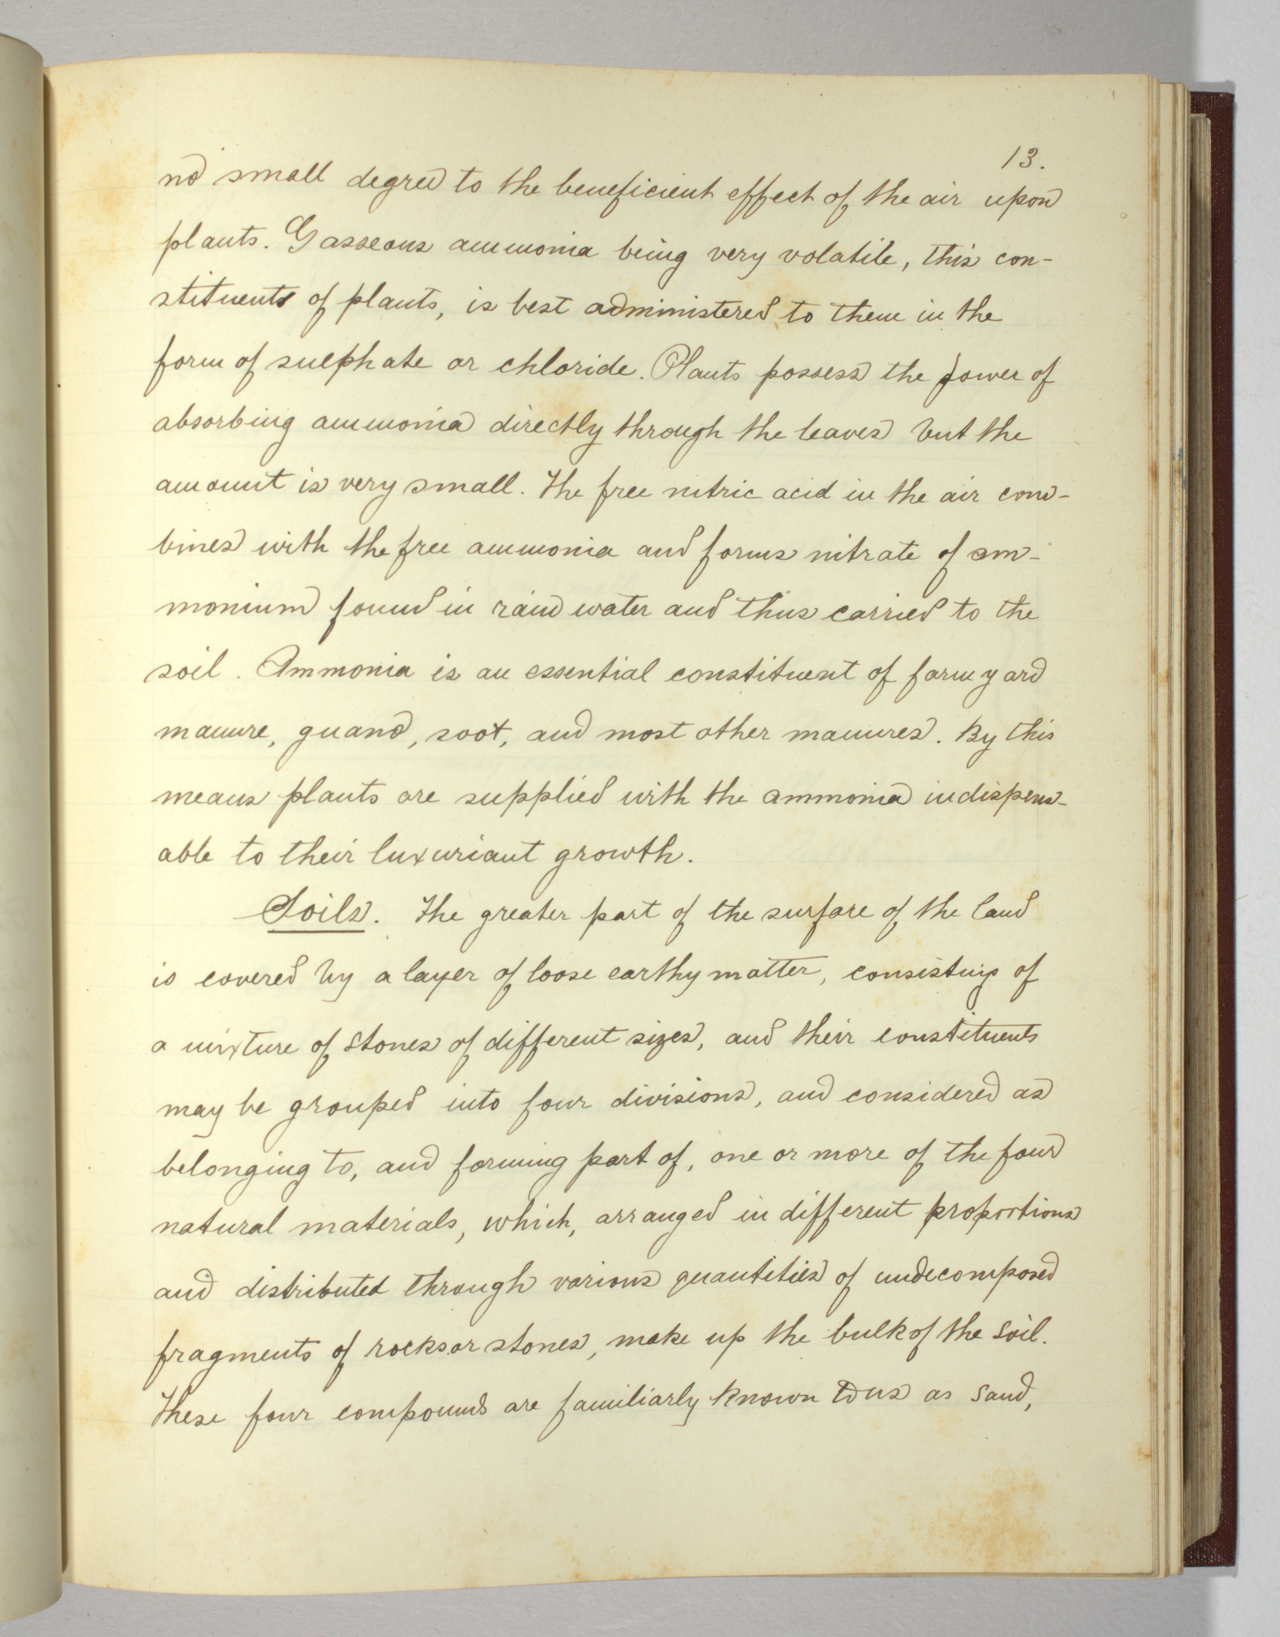 13.
no small degree to the beneficient effect of the air upon
plants. Gasseous ammonia being very volatile, this con-
stituents of plants, is best administered to them in the
form of sulphate or chloride. Plants possess the power of
absorbing ammonia directly through the leaves but the
amount is very small. The free nitric acid in the air com-
bines with the free ammonia and forms nitrate of am-
monium found in rain water and thus carried to the
soil. Ammonia is an essential constituent of farmyard
manure, guano, soot, and most other manures. By this
means plants are supplied with the ammonia indispens-
able to their luxuriant growth.
Soils. The greater part of the surface of the land
is covered by a layer of loose earthy matter, consisting of
a mixture of stones of different sizes, and their constituents
may be grouped into four divisions, and considered as
belonging to, and forming part of, one or more of the four
natural materials, which, arranged in different proportions
and distributed through various quantities of undecomposed
fragments of rocks or stones, make up the bulk of the soil.
These four compounds are familiarly known to us as sand,